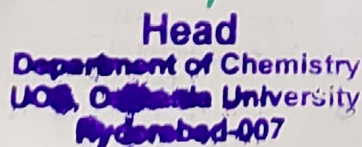 Head
Department of Chemistry
UCS, Osmania University
Hyderabad-007